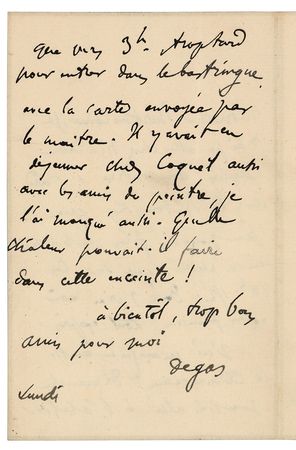 que vers 3h trop tard
pour entrer dans le bastringue
avec la carte envoyée par
le maitre. Il y avait eu
déjeuner chez Coquet aussi
avec les amis du peintre, je
l'ai manqué aussi. Quelle
chaleur pouvait-il faire
dans cette enceinte !
à bientôt, trop bons
amis pour moi
Degas
Lundi